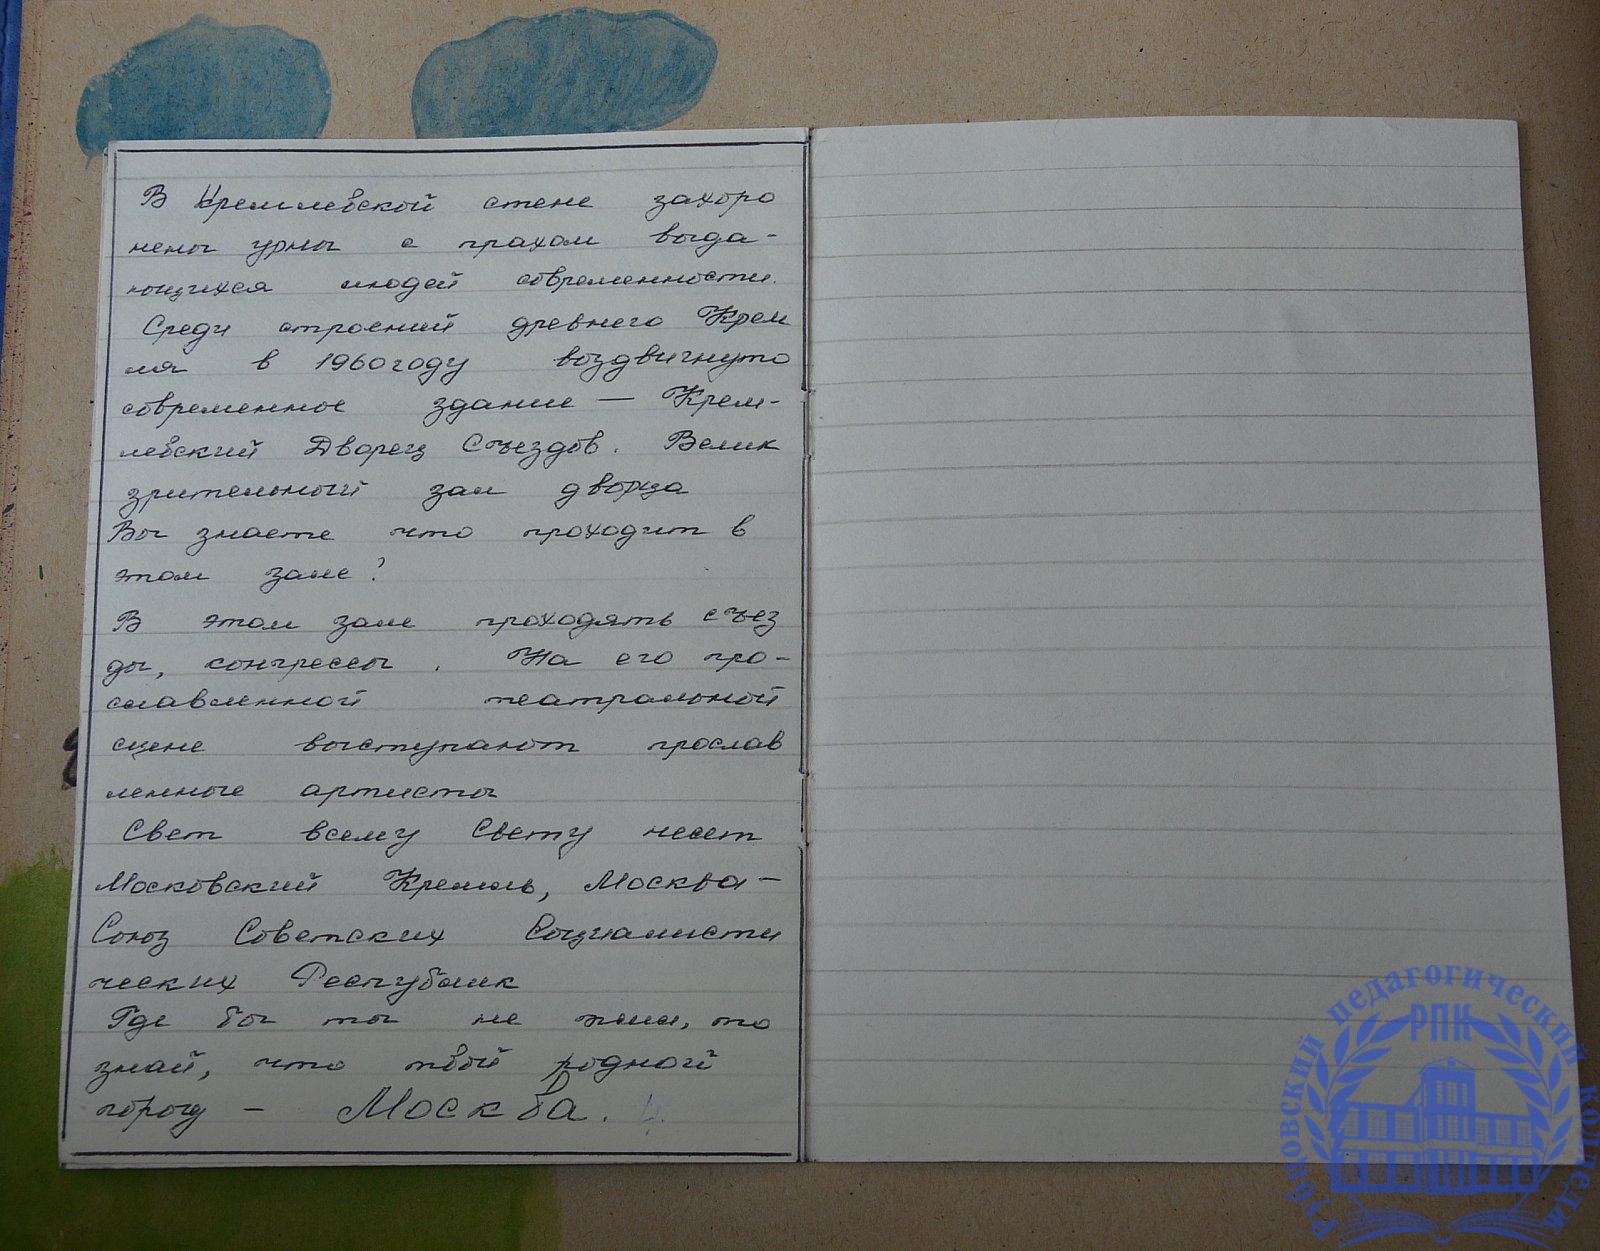 В Кремлевской стене захоро
нены урны с прахом выда-
ющихся людей современности.
Среди строений древнего Крем
ля в 1960 году воздвигнуто
современное здание — Крем-
левский Дворец Съездов. Велик
зрительный зал дворца
Вы знаете что проходит в
этом зале?
В этом зале проходять съез
ды, конгрессы. На его про-
славленной театральной
сцене выступают прослав
ленные артисты
Свет всему Свету несет
Московский Кремль, Москва —
Союз Советских Социалисти
ческих Республик
Где бы ты не жил, то
знай, что твой родной
город — Москва. 4.
Рубцовский педагогический колледж
РПК